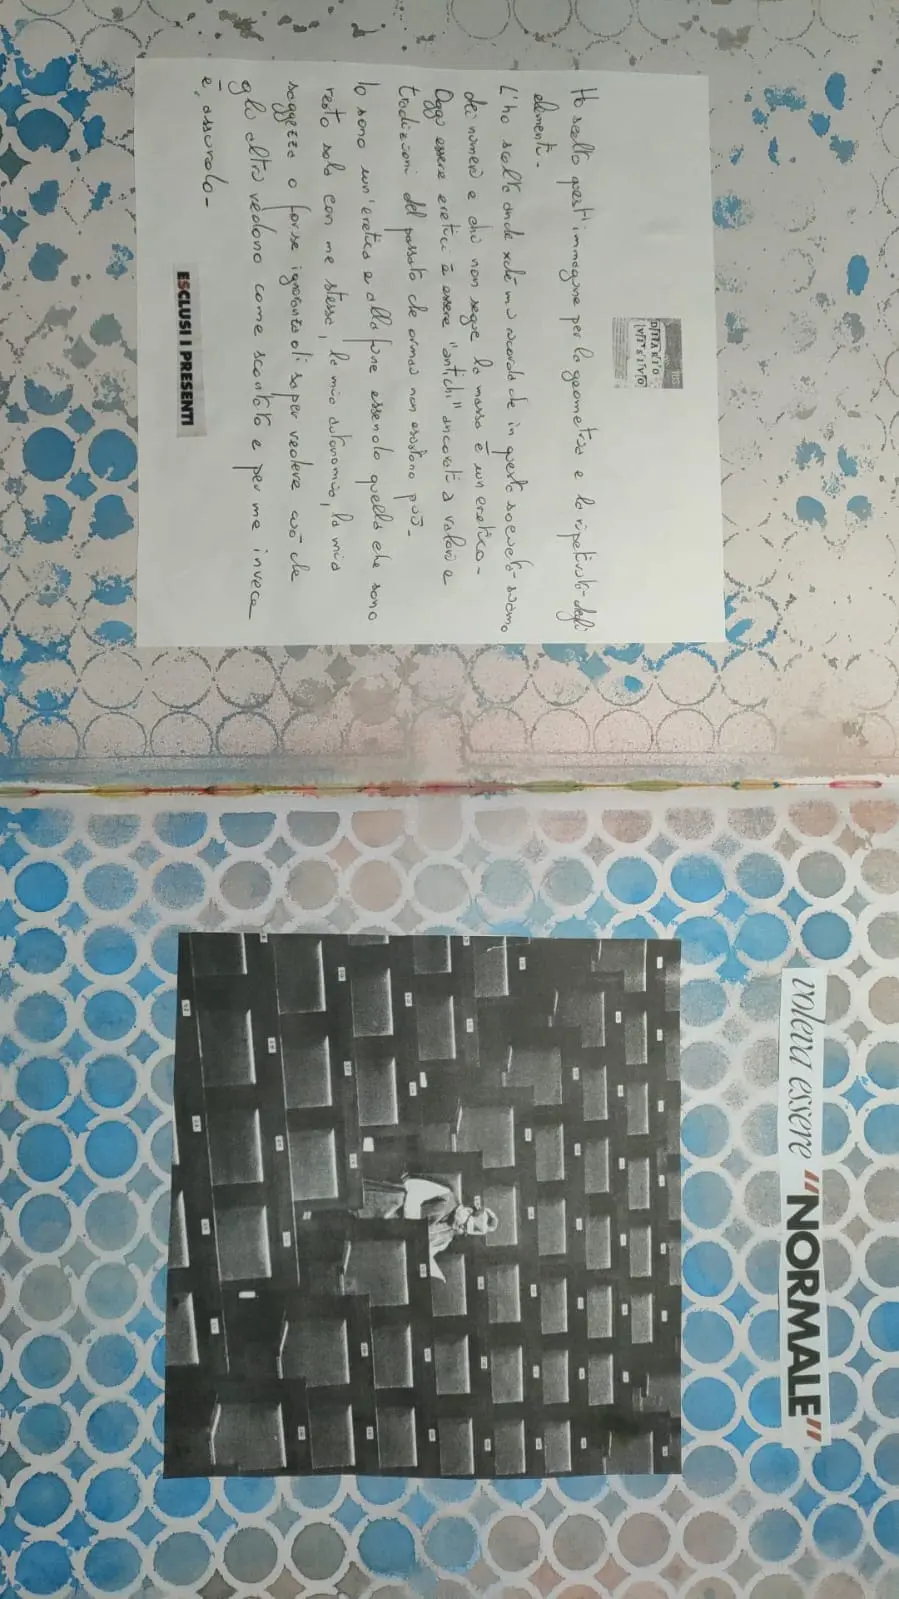 DIARIO
VISIVO
Ho scelto quest'immagine per la geometria e la ripetitività degli
elementi.
L'ho scelta anche xchè mi ricorda che in questa società siamo
dei numeri e chi non segue la massa è un eretico-
Oggi essere eretici è essere "antichi" ancorati a valori e
tradizioni del passato che ormai non esistono più-
Io sono un'eretica e alla fine essendo quella che sono
resto sola con me stessa, la mia autonomia, la mia
saggezza o forse ignoranza di saper vedere ciò che
gli altri vedono come scontato e per me invece
è assurdo-
ESCLUSI I PRESENTI
voleva essere "NORMALE"